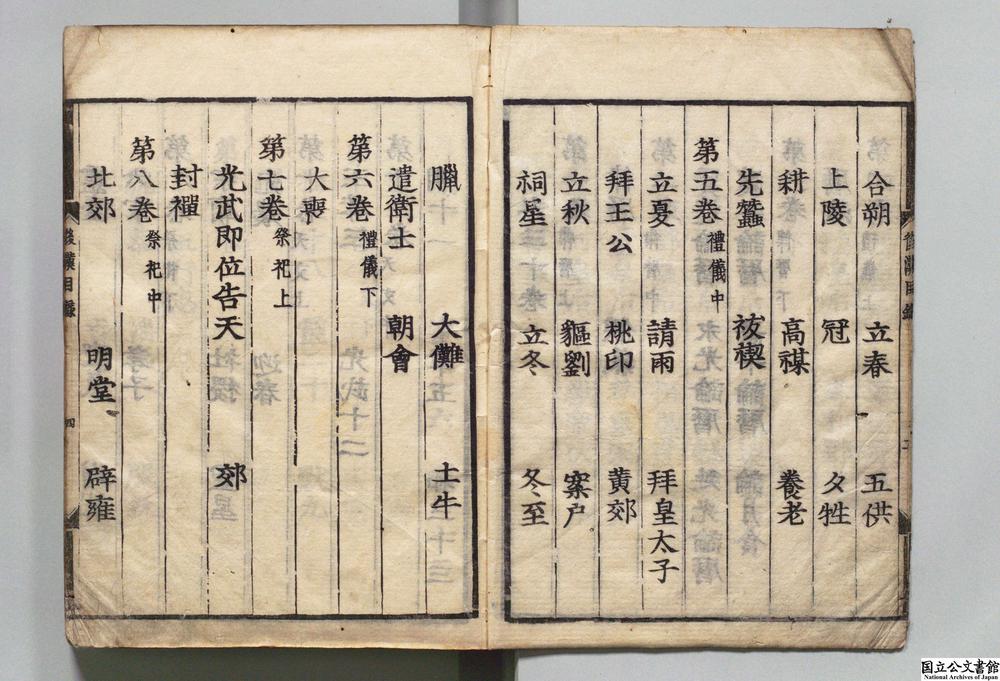 合朔 立春 五供
上陵 冠 夕牲
耕 高禖 養老
先蠶 祓禊
第五卷 禮儀中
立夏 請雨 拜皇太子
拜王公 桃印 黃郊
立秋 貙劉 案户
祠星 立冬 冬至
臘 大儺 土牛
遣衛士 朝會
第六卷 禮儀下
大喪
第七卷 祭祀上
光武即位告天 郊
封禪
第八卷 祭祀中
北郊 明堂 辟雍
後漢目錄
四
国立公文書館
National Archives of Japan